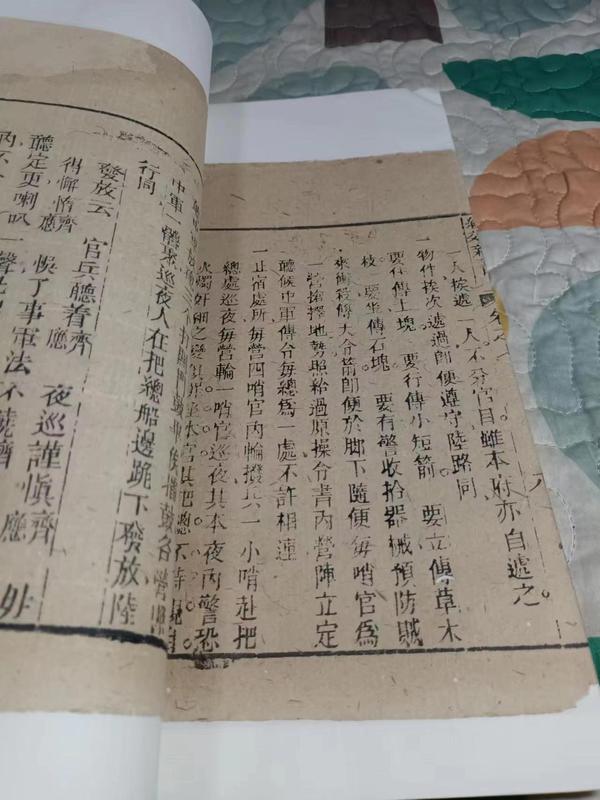 人挨遞一人不分官目雖本府亦自遞之。
一物件挨次遞過即便遵守陸路同
要行傳土塊 要行傳小短箭 要立傳草木
枝 要坐傳石塊 要有警收拾器械預防賊
來斫殺傳大令箭即便於脚下隨便每哨官爲
一營揀擇地勢照給過原操分書內營陣立定
聽候中軍傳令每總爲一處不許相連
一止宿處所每營四哨官內輪撥兵一小哨赴把
總處巡夜每營輪一哨官巡夜其本夜內警恐
火燭奸細之變俱坐本官其把總不時
中軍一體聚巡夜人在把總船邊跪下發放陸
行同
發放云 官兵聽着齊應 夜巡謹慎齊應 毋
得懈惰齊應 悞了事軍法不饒齊應
聽定更喇叭一聲